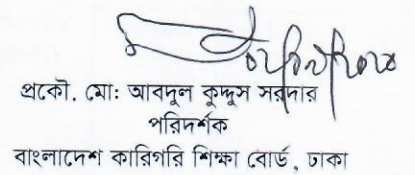 প্রকৌ. মো: আবদুল কুদ্দুস সরদার
পরিদর্শক
বাংলাদেশ কারিগরি শিক্ষা বোর্ড, ঢাকা